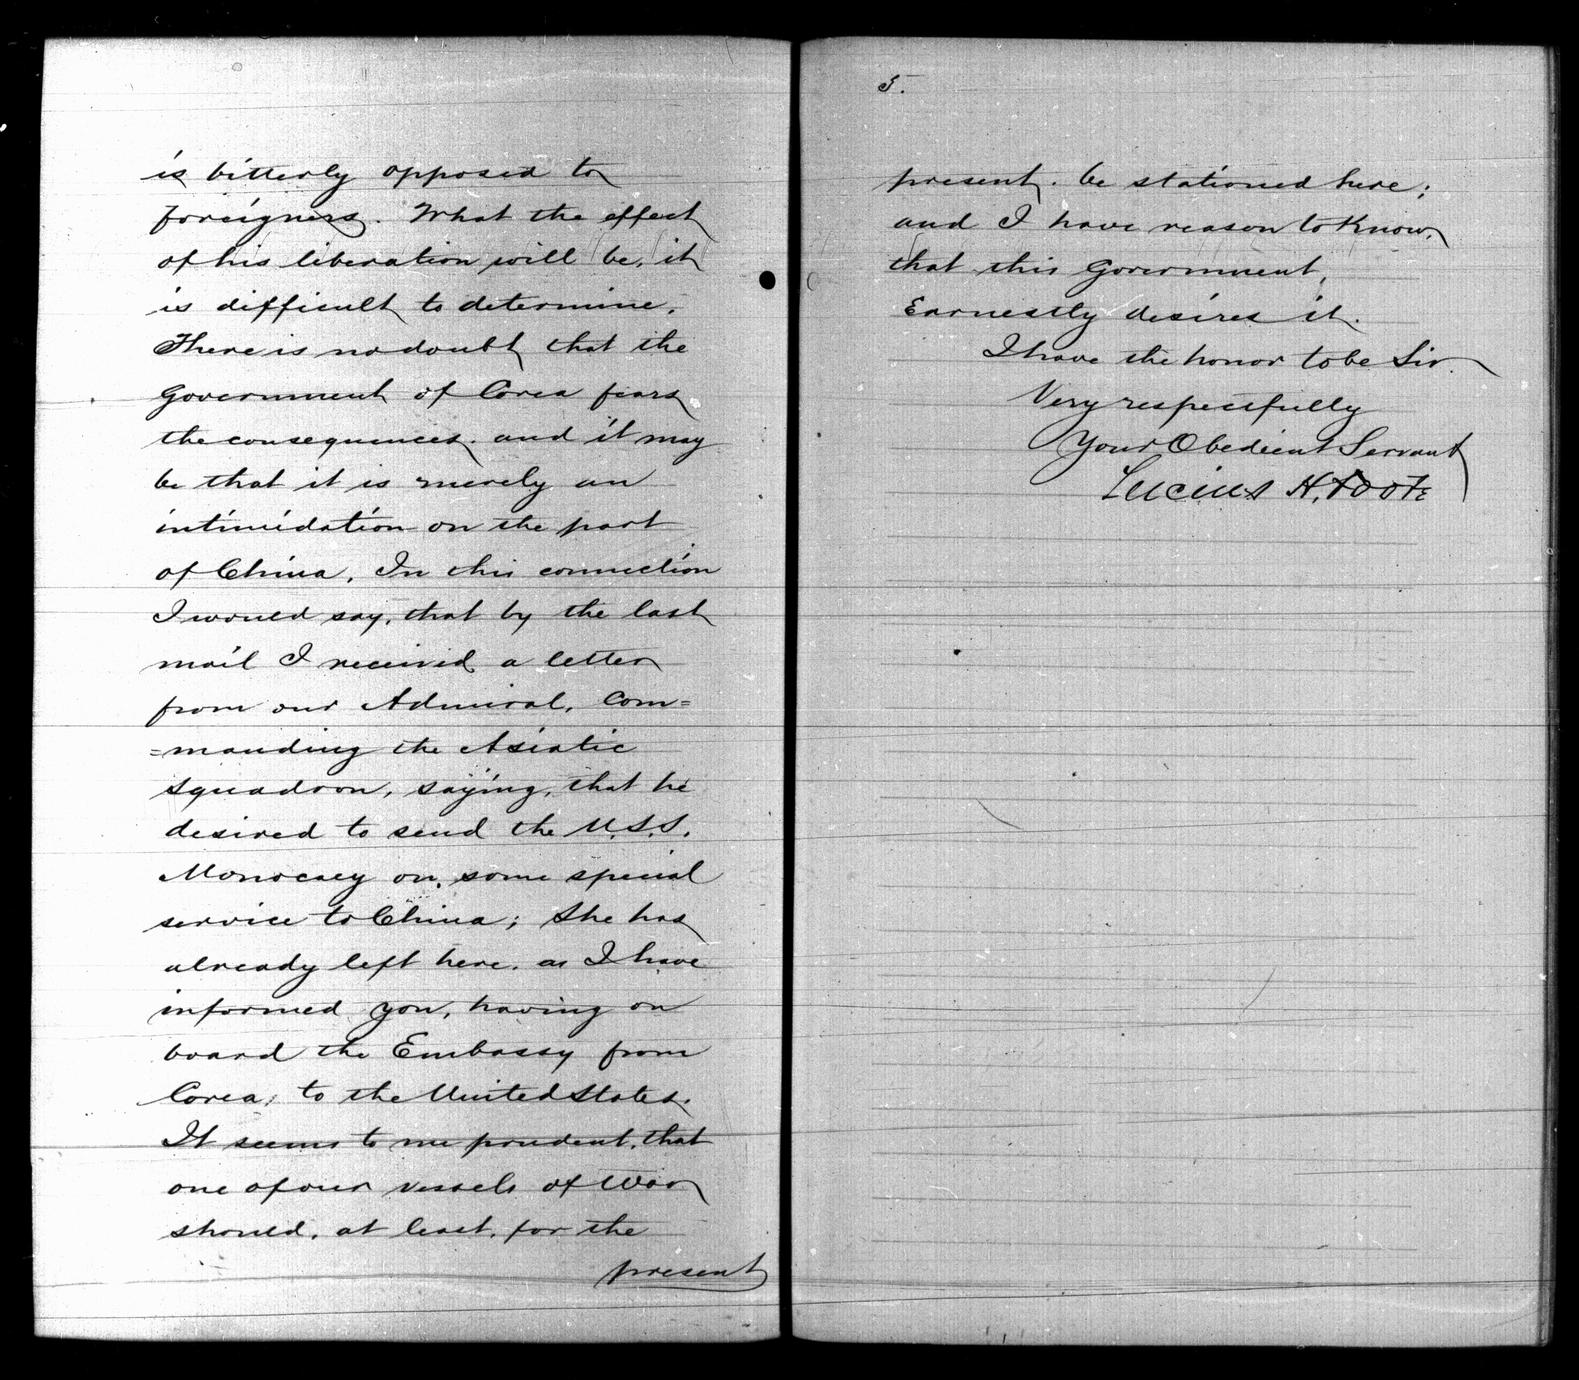 is bitterly opposed to
foreigners. What the effect
of his liberation will be, it
is difficult to determine.
There is no doubt that the
Government of Corea fears
the consequences. and it may
be that it is merely an
intimidation on the part
of China. In this connection
I would say, that by the last
mail I received a letter
from our Admiral, Com=
=manding the Asiatic
Squadron, saying, that he
desired to send the U.S.S.
Monocacy on some special
service to China; She has
already left here, as I have
informed you, having on
board the Embassy from
Corea, to the United States.
It seems to me prudent, that
one of our vessels of War
should, at least, for the
present
5.
present. be stationed here;
and I have reason to Know,
that this Government,
Earnestly desires it.
I have the honor to be Sir.
Very respectfully
Your Obedient Servant
Lucius H. Foote